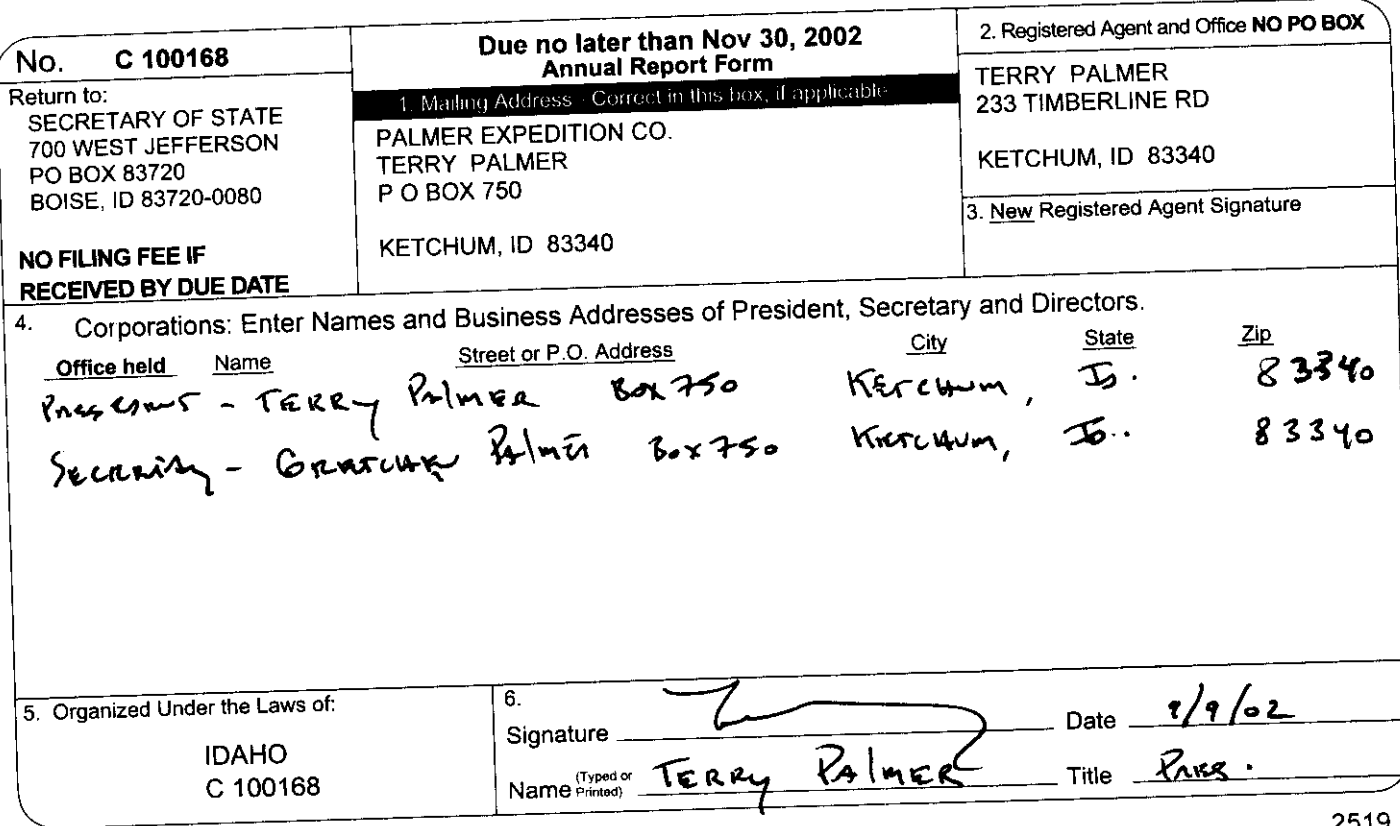 No. C 100168
Return to:
SECRETARY OF STATE
700 WEST JEFFERSON
PO BOX 83720
BOISE, ID 83720-0080
NO FILING FEE IF
RECEIVED BY DUE DATE
Due no later than Nov 30, 2002
Annual Report Form
1. Mailing Address - Correct in this box, if applicable
PALMER EXPEDITION CO.
TERRY PALMER
P O BOX 750
KETCHUM, ID 83340
2. Registered Agent and Office NO PO BOX
TERRY PALMER
233 TIMBERLINE RD
KETCHUM, ID 83340
3. New Registered Agent Signature
4. Corporations: Enter Names and Business Addresses of President, Secretary and Directors.
Office held Name Street or P.O. Address City State Zip
President - TERRY Palmer Box 750 KETCHUM, ID. 83340
SECRETARY - GRETCHEN Palmer Box 750 KETCHUM, ID.. 83340
5. Organized Under the Laws of:
IDAHO
C 100168
6.
Signature Date /9/02
Name (Typed or Printed) TERRY PAlMER Title PRES.
2519